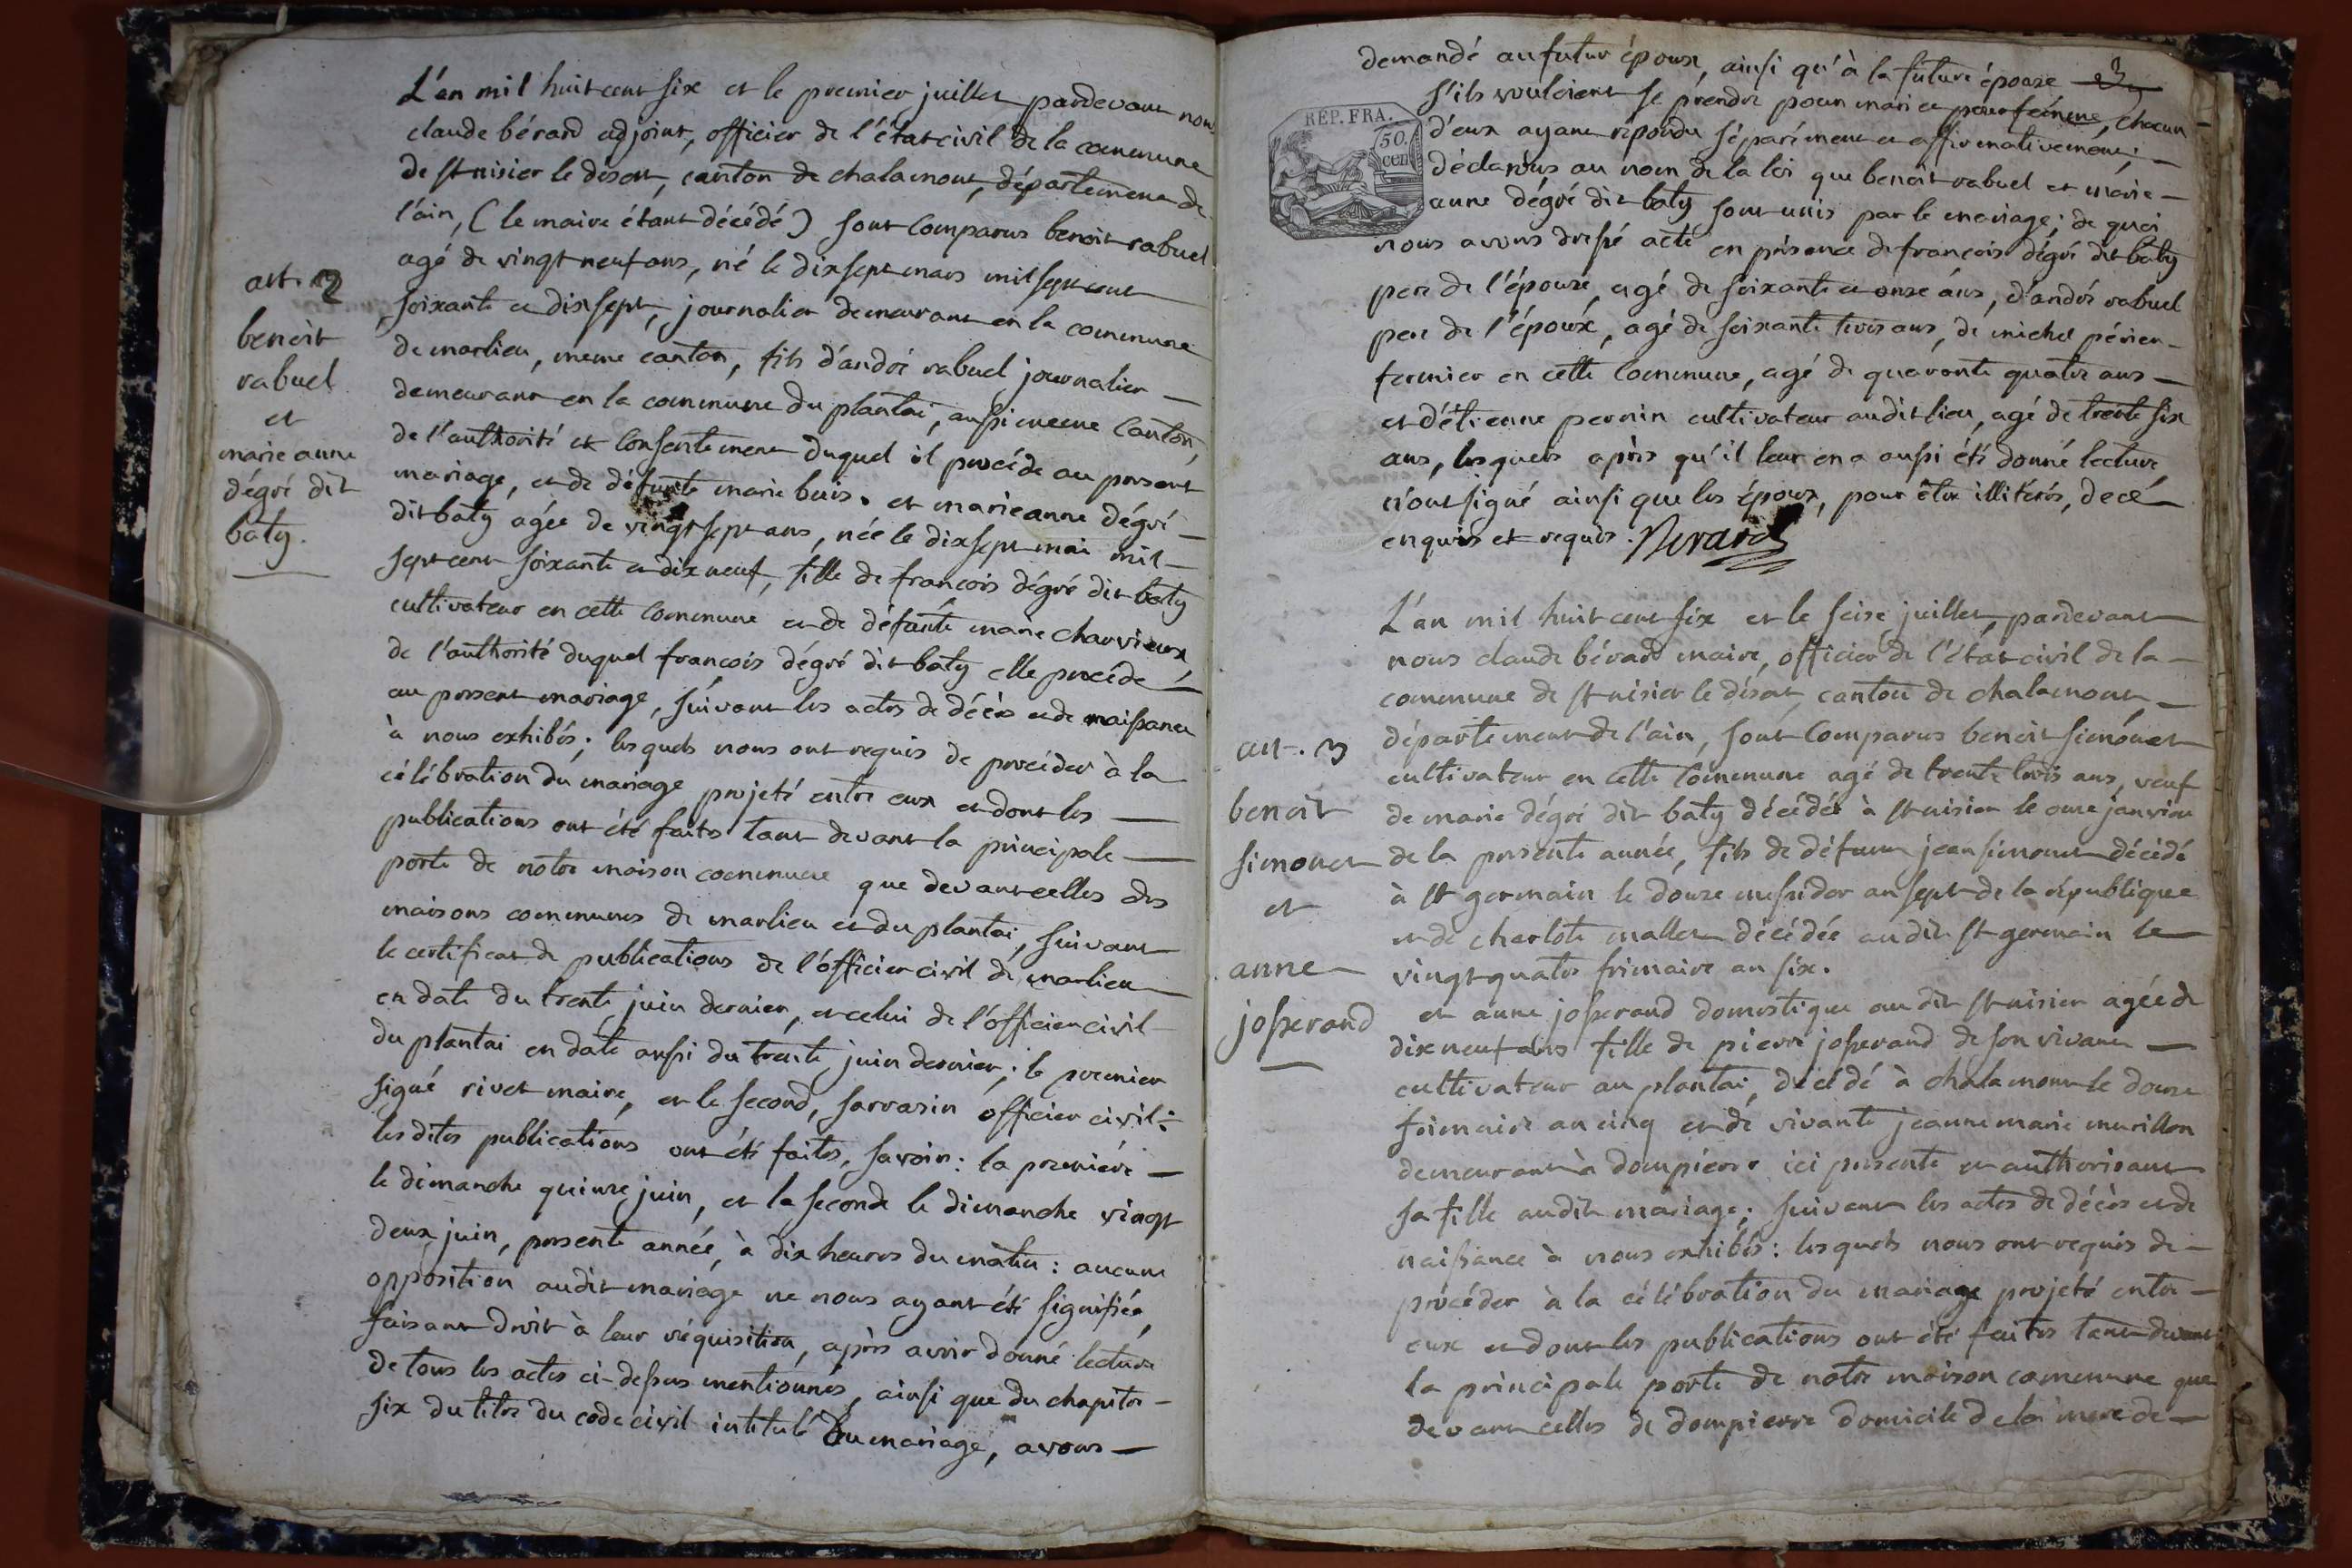 L'an mil huit cent six et le premier juillet pardevant nous
claude bérard adjoint, officier de l'état civil de la commune
de st nisier le desert, canton de chalamont, département de
l'ain, (le maire étant décédé) sont comparus benoit rabuel
agé de vingt neuf ans, né le dix sept mars mil sept cent
soixante et dix sept, journalier demeurant en la commune
de marlieu, meme canton, fils d'andré rabuel journalier —
demeurant en la commune du plantai, aussi meme canton,
de l'authorité et consentement duquel il procéde au present
mariage, et de défunte marie buis. et marie anne dégré —
dit baty agée de vingt sept ans, née le dix sept mai mil —
sept cent soixante et dix neuf, fille de francois dégré dit baty
cultivateur en cette commune et de défunte marie charvieux,
de l'authorité duquel francois dégré dit baty elle procéde —
au present mariage, suivant les actes de décès et de naissance
à nous exhibés; lesquels nous ont requis de procéder à la
célébration du mariage projeté entre eux et dont les —
publications ont été faites tant devant la principale —
porte de notre maison commune que devant celles des
maisons communes de marlieu et du plantai, suivant
le certificat de publications de l'officier civil de marlieu
en date du trente juin dernier, et celui de l'officier civil
du plantai en date aussi du trente juin dernier; le premier
signé rivet maire, et le second, sarrasin officier civil:
les dites publications ont été faites, savoir: la premiére —
le dimanche quinze juin, et la seconde le dimanche vingt
deux juin, presente année, à dix heures du matin: aucune
opposition audit mariage ne nous ayant été signifiée,
faisant droit à leur réquisition, après avoir donné lecture
de tous les actes ci-dessus mentionnés, ainsi que du chapitre —
six du titre du code civil intitulé Du mariage, avons —
art. 2
benoit
rabuel
et
marie anne
dégré dit
baty.
demandé au futur époux, ainsi qu'à la future épouse
s'ils vouloient se prendre pour mari et pour femme, chacun
d'eux ayant répondu séparément et affirmativement; —
déclarons au nom de la loi que benoit rabuel et marie —
anne dégré dit baty sont unis par le mariage; de quoi
nous avons dressé acte en présence de francois dégré dit baty
pere de l'épouse, agé de soixante et onze ans, d'andré rabuel
pere de l'époux, agé de soixante trois ans, de michel périer —
fermier en cette commune, agé de quarante quatre ans —
et d'étienne pernin cultivateur audit lieu, agé de trente six
ans, lesquels après qu'il leur en a aussi été donné lecture
n'ont signé ainsi que les époux, pour être illitérés, de ce
enquis et requis. Berard
RÉP. FRA.
50.
cen
L'an mil huit cent six et le seize juillet, pardevant
nous claude bérard maire, officier de l'état civil de la —
commune de st nisier le désert, canton de chalamont, —
département de l'ain, sont comparus benoit simonet
cultivateur en cette commune agé de trente trois ans, veuf
de marie dégré dit baty décédée à st nisier le onze janvier
de la presente année, fils de défunt jean simonet décédé
à st germain le douze messidor an sept de la république
et de charlote mallet décédée audit st germain le
vingt quatre frimaire an six.
et anne josserand domestique audit st nisier agée de
dix neuf ans fille de pierre josserand de son vivant —
cultivateur au plantai, décédé à chalamont le douze
frimaire an cinq et de vivante jeanne marie murillon
demeurant à dompierre ici presente et authorisant
sa fille audit mariage; suivant les actes de décès et de
naissance à nous exhibés: lesquels nous ont requis de —
procéder à la célébration du mariage projeté entre —
eux et dont les publications ont été faites tant devant
la principale porte de notre maison commune que
devant celles de dompierre domicile de la mere de —
art. 3
benoit
simonet
et
anne
josserand